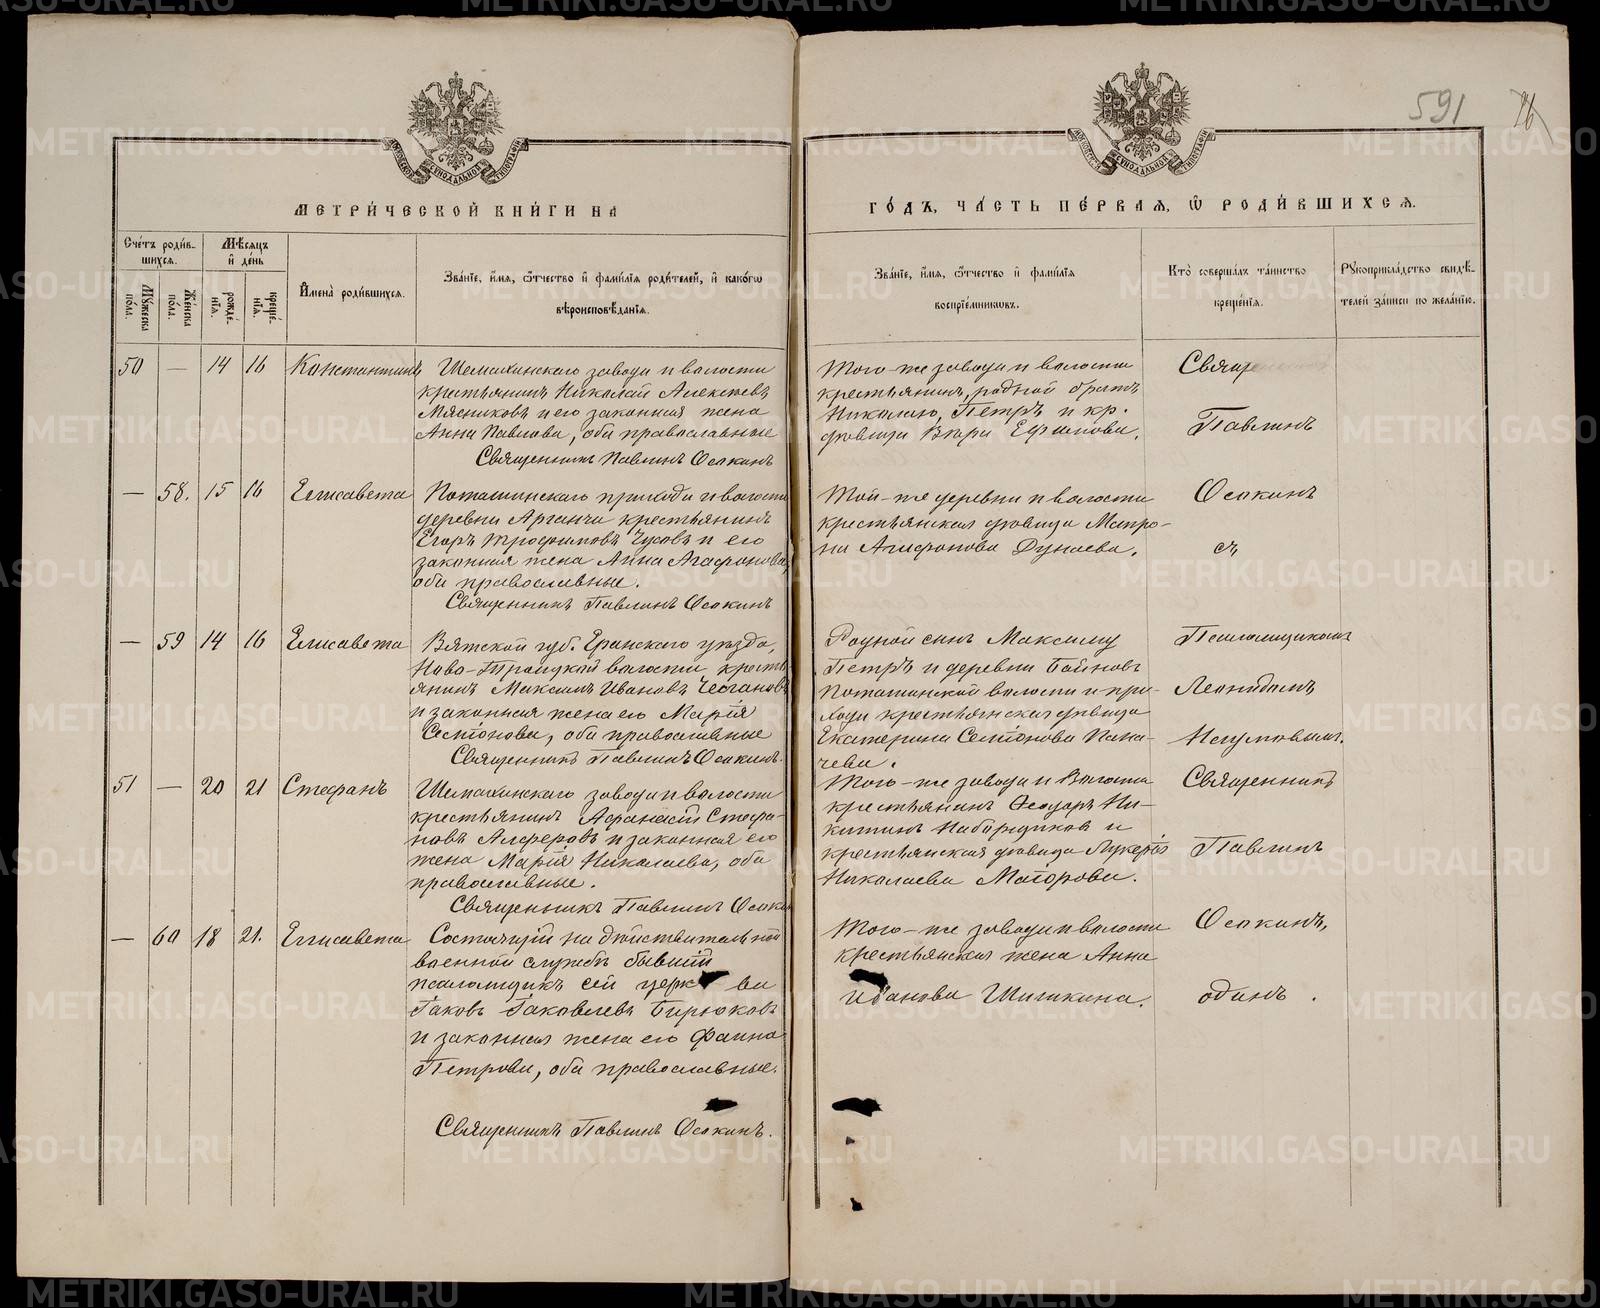 591 26
МЕТРИ́ЧЕСКОЙ КНИ́ГИ НА
ГО́ДЪ, ЧА́СТЬ ПЕ́РВАѦ, Ѡ҆ РОДИ́ВШИХСѦ.
Сче́тъ роди́в-
шихсѧ.
Мѣ́сѧцъ
и҆ де́нь
Мꙋ́жеска по́ла.
Же́нска по́ла.
рожде́нїѧ.
креще́нїѧ.
И҆мена̀ роди́вшихсѧ.
Зва́нїе, и҆́мѧ, ѻ҆́тчество и҆ фами́лїѧ роди́телей, и҆ како́гѡ
вѣроисповѣ́данїѧ.
Зва́нїе, и҆́мѧ, ѻ҆́тчество и҆ фами́лїѧ
воспрїе́мниковъ.
Кто̀ соверша́лъ та́инство
креще́нїѧ.
Рꙋкоприкла́дство свидѣ́-
телей за́писи по жела́нїю.
50 — 14 16 Константинъ
Шемахинскаго завода и волости
крестьянинъ Николай Алексѣевъ
Мясниковъ и его законная жена
Анна Павлова, оба православные
Священникъ Павлинъ Осокинъ
Того-же завода и волости
крестьянинъ, родной братъ
Николаю, Петръ и кр.
дѣвица Вѣра Ефимова.
Священникъ
Павлинъ
— 58. 15 16 Елисавета
Поташинскаго прихода и волости
деревни Артанча крестьянинъ
Егоръ Трофимовъ Чусовъ и его
законная жена Анна Агафонова,
оба православные.
Священникъ Павлинъ Осокинъ
Той-же деревни и волости
крестьянская дѣвица Матро-
на Агафонова Дунаева.
Осокинъ
съ
— 59 14 16 Елисавета
Вятской губ. Яранскаго уѣзда,
Ново-Троицкой волости, кресть-
янинъ Максимъ Ивановъ
и законная жена его Марія
Семіонова, оба православные
Священникъ Павлинъ Осокинъ.
Родной сынъ Максиму
Петръ и деревни
Поташинской волости и при-
хода крестьянская дѣвица
Екатерина Семіонова Пана-
чева.
Псаломщикомъ
Леонидомъ
Наумовымъ.
51 — 20 21 Стефанъ
Шемахинскаго завода и волости
крестьянинъ Афанасій Стефа-
новъ Алферовъ и законная его
жена Марія Николаева, оба
православные.
Священникъ Павлинъ Осокин
Того-же завода и волости
крестьянинъ Ѳеодоръ Ни-
китинъ Наборщиков и
крестьянская дѣвица Лукерія
Николаева Моторова.
Священникъ
Павлинъ
— 60 18 21. Елисавета
Состоящій на дѣйствительной
военной службѣ бывшій
псаломщикъ сей церк ви
Іаковъ Іаковлевъ Бирюковъ
и законная жена его Фаина
Петрова, оба православные.
Священникъ Павлинъ Осокинъ.
Того-же завода и волости
крестьянская жена Анна
Иванова Шишкина.
Осокинъ,
одинъ .
METRIKI.GASO-URAL.RU